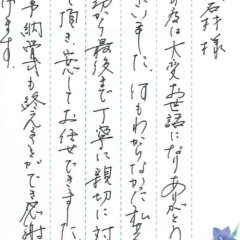 若井様
の度は大変お世話になりありがとう
ざいました。何もわからなかった私共
初から最後まで丁寧に親切に対
て頂き、安心してお任せできました
事納骨式も終えることができ感謝
げます。